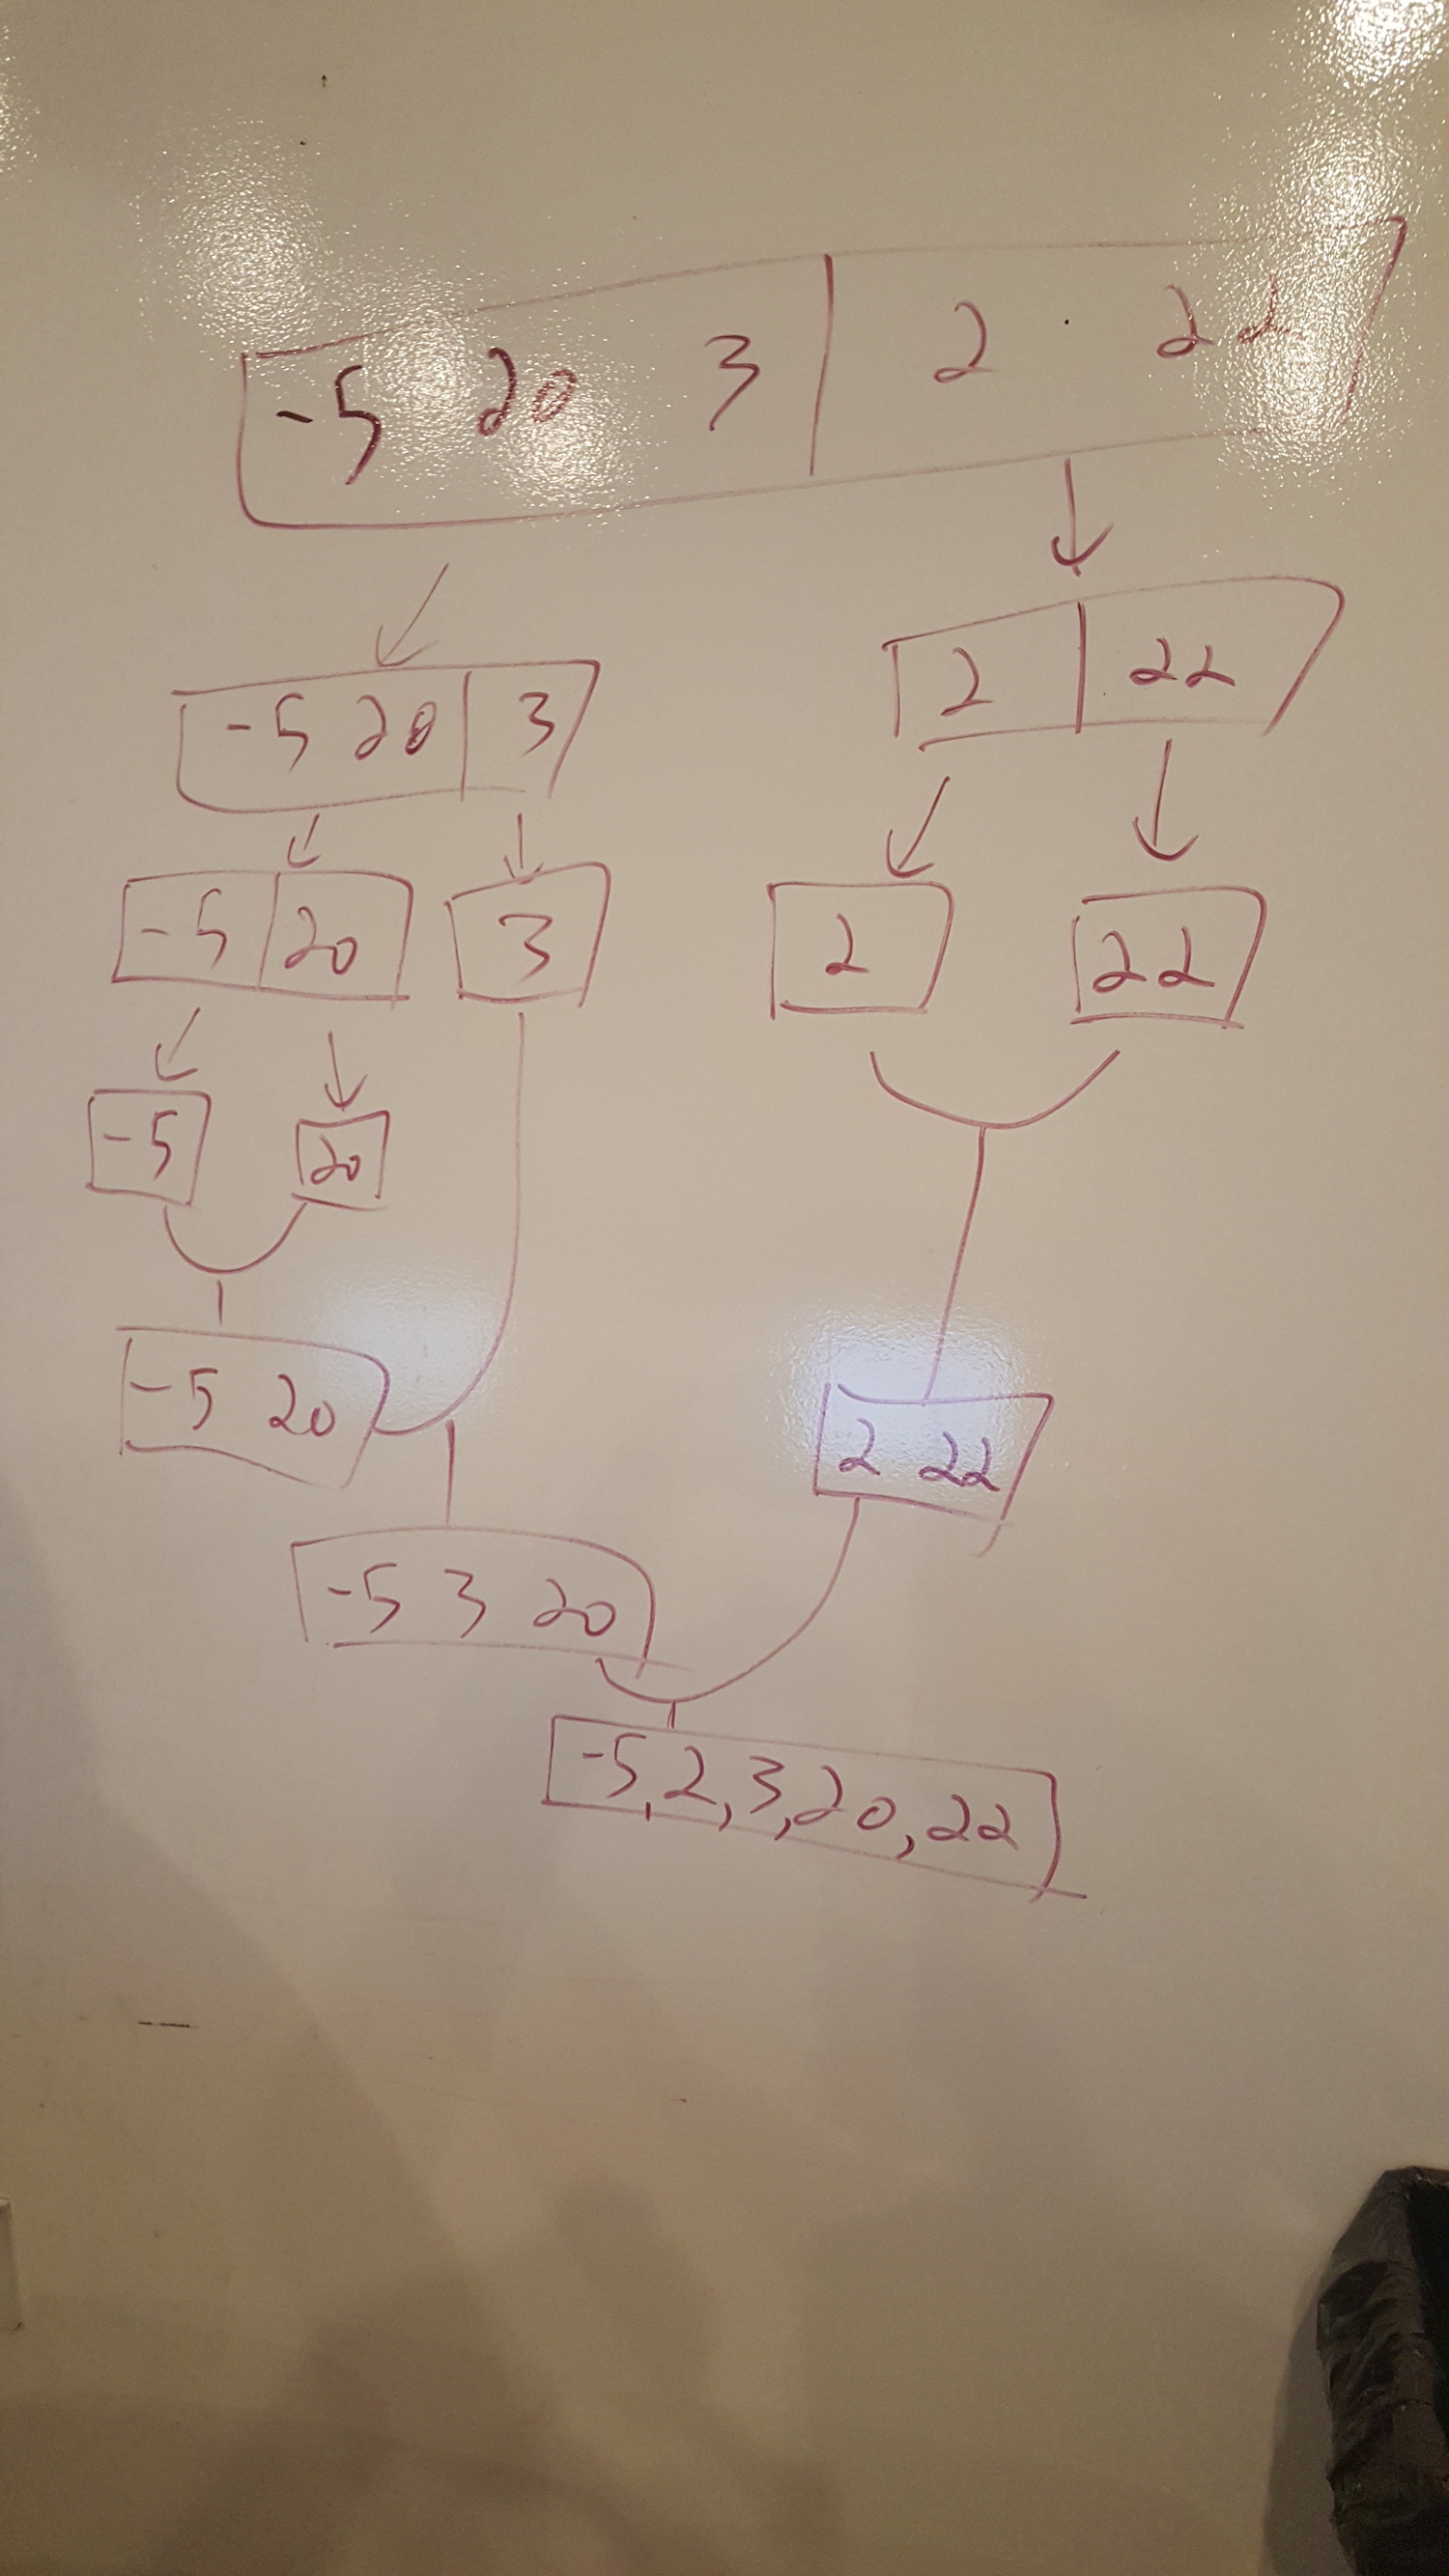 -5 20 3 2 22
-5 20 3 2 22
-5 20 3 2 22
-5 20
-5 20 2 22
-5 3 20
-5, 2, 3, 20, 22